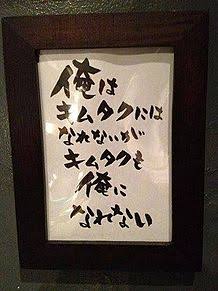 俺は
キムタクには
なれないが
キムタクも
俺に
なれない